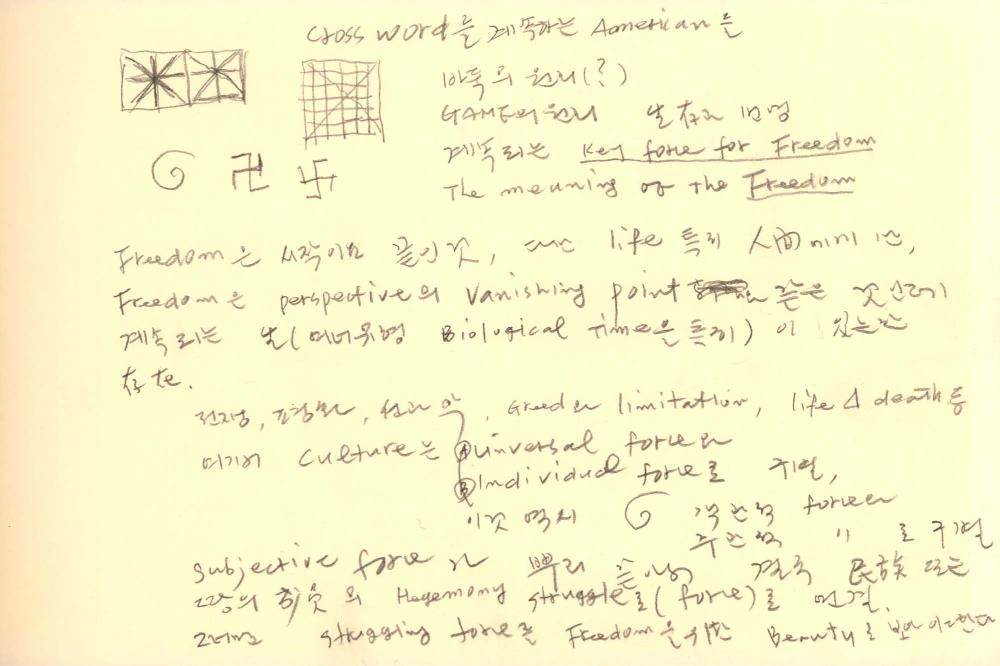 Cross word를 계속하는 American들
바둑의 원리(?)
GAME의 원리 生存과
계속되는 Key force for Freedom
The meaning of the Freedom
卍 卐
Freedom은 시작이요 끝인 것, life 특히 人間에게
Freedom은 perspective의 Vanishing point 같은 것
계속되는 生( Biological Time은 특히)이 있는 한
存在.
전쟁, 선과 악, Greed와 limitation, life & death 등
여기서 Culture는 Ⓐ universal force와
Ⓑ Individual force로 구별,
이것 역시 객관적 force와
주관적 〃 로 구별
Subjective force가 뿌리 결국 民族 또는
의 Hegemony struggle로(force)로 연결.
그러므로 struggling force를 Freedom을 위한 Beauty로 보아야 한다